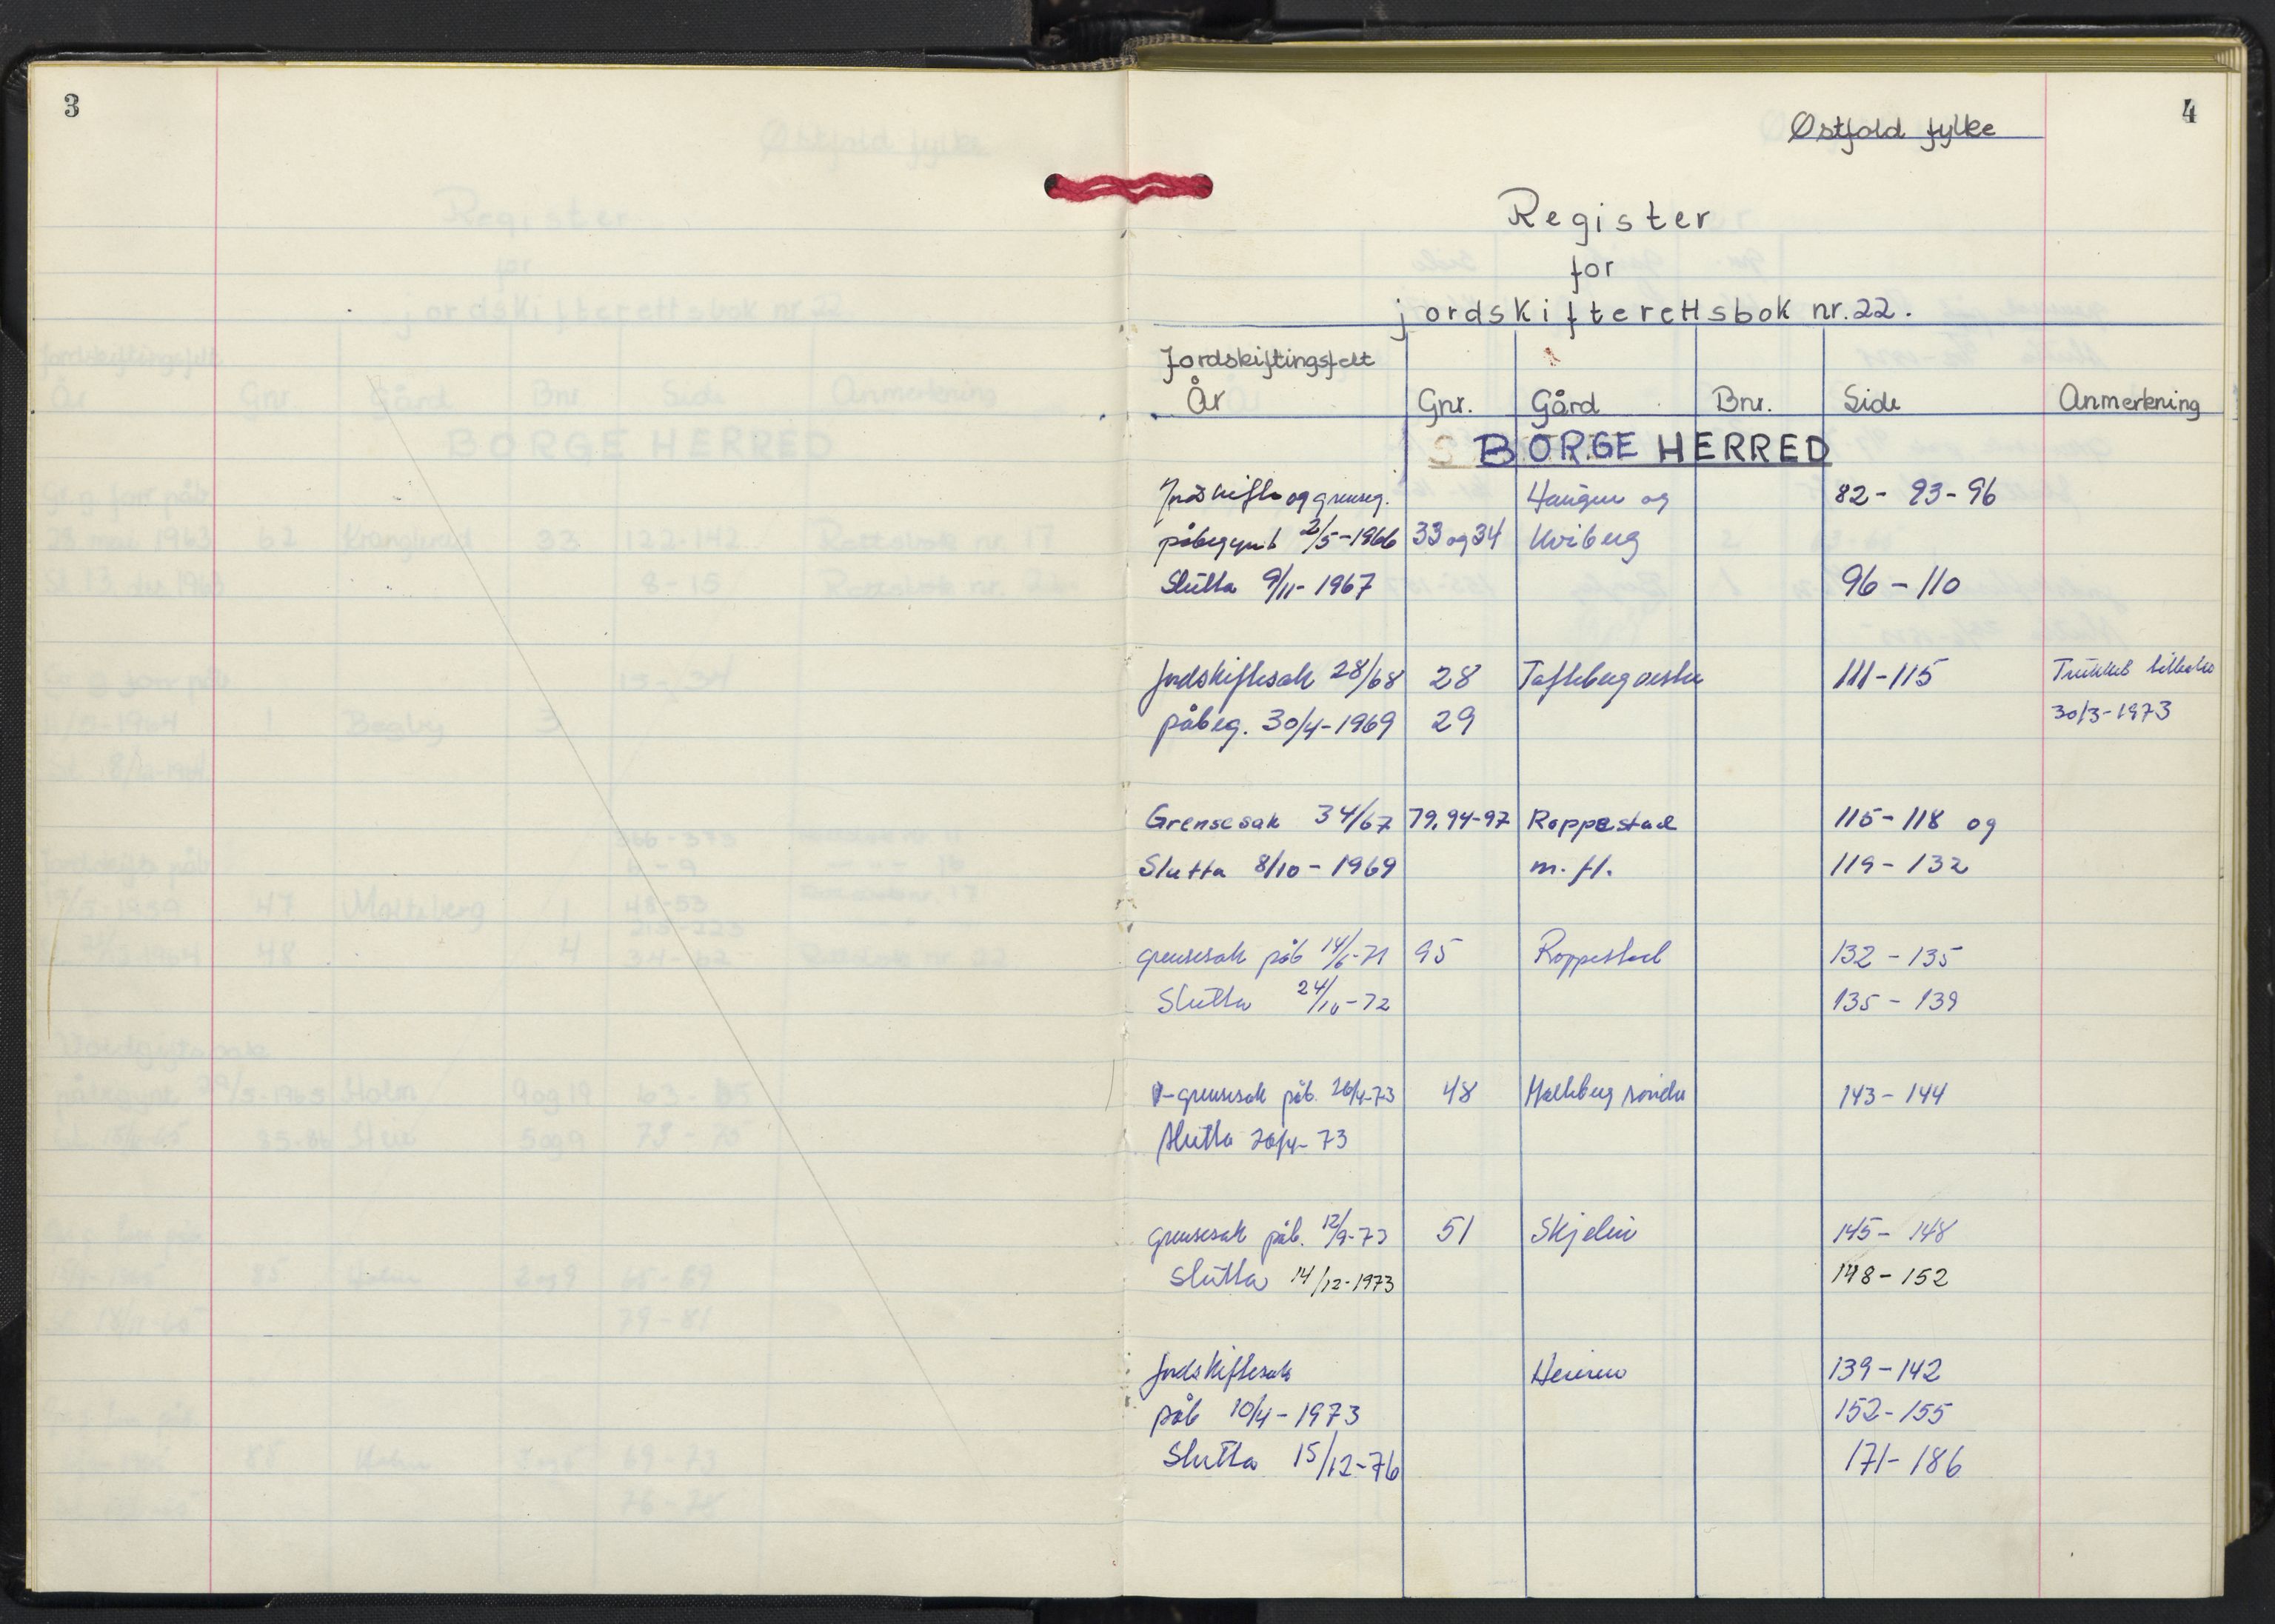 3
4
Østfold fylke
Register
for
jordskifterettsbok nr. 22.
Jordskiftingsfelt
År Gnr. Gård Bnr. Side Anmerkning
BORGE HERRED
Jordskifte og grenseg. Haugen og 82 - 93 - 96
påbegynt 2/5-1966 33 og 34 Kviberg
Slutta 9/11-1967 96 - 110
Jordskiftesak 28/68 28 Tofteberg vestre 111-115 Trukket tilbake
påbeg. 30/4-1969 29 30/3-1973
Grensesak 34/67 79, 94-97 Roppestad 115 - 118 og
Slutta 8/10 - 1969 m. fl. 119 - 132
Grensesak påb 14/6-71 95 Roppestad 132 - 135
Slutta 24/10-72 135 - 139
grensesak påb. 26/4-73 48 Molteberg søndre 143 - 144
Slutta 26/4-73
Grensesak påb. 12/9-73 51 Skjelin 145 - 148
Slutta 14/12-1973 148 - 152
Jordskiftesak 139 - 142
påb 10/4 - 1973 152 - 155
Slutta 15/12-76 171 - 186